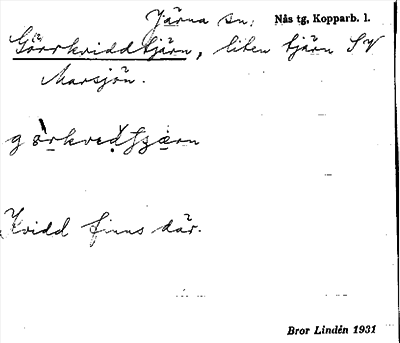 Järna sn; Nås tg, Kopparb. l.
Görrkviddtjärn, liten tjärn SV
Marsjön.
Kvidd finns där.
Bror Lindén 1931